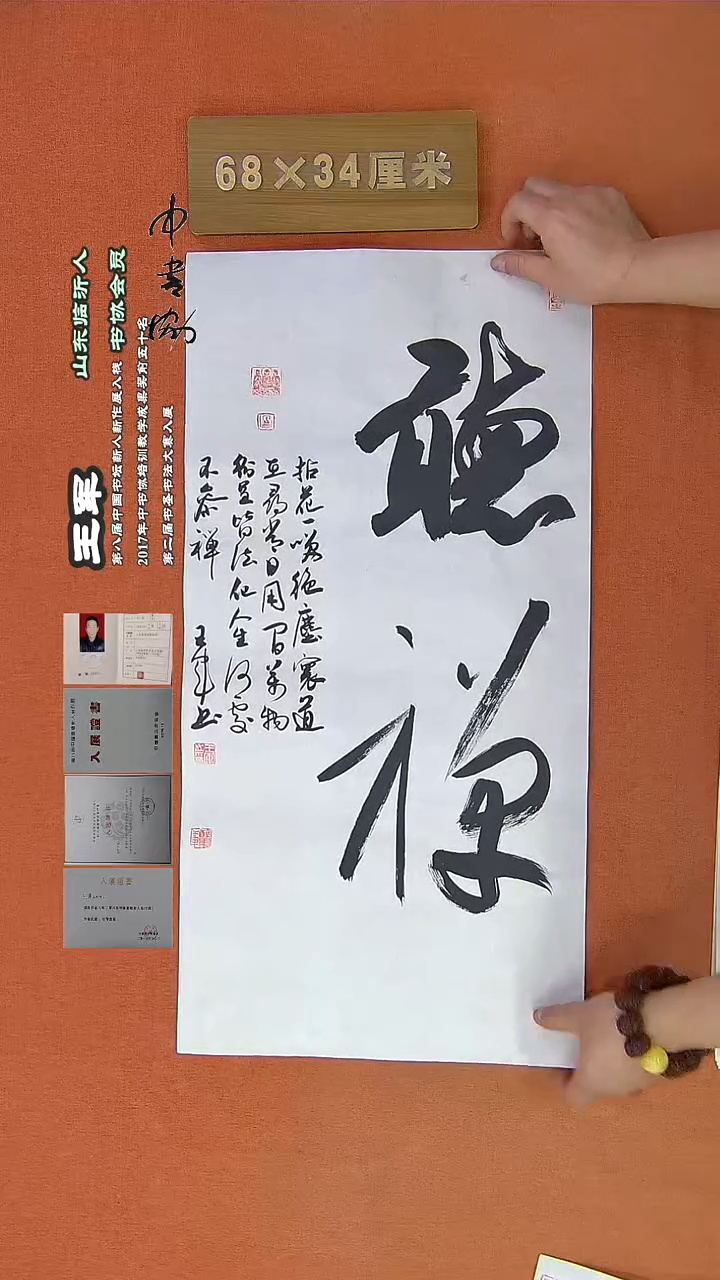 68×34厘米
聽禪
拈花一笑絕塵寰道
在尋常日用間萬物
皆法化人生何處
不參禪 王軍书
中书协
山东临沂人
书协会员
王军
第八届中国书坛新人新作展入展
2017年中书协培训教学成果奖前五十名
第二届书圣书法大赛入展
入展證書